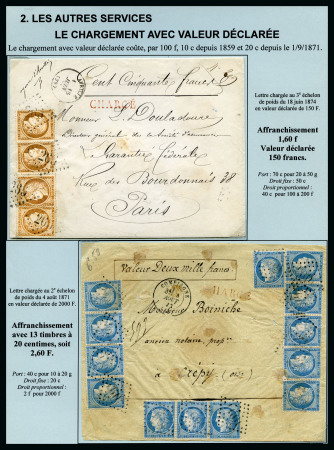 2. LES AUTRES SERVICES
LE CHARGEMENT AVEC VALEUR DÉCLARÉE
Le chargement avec valeur déclarée coûte, par 100 f, 10 c depuis 1859 et 20 c depuis le 1/9/1871.
Cent Cinquante francs
CHARGÉ
Monsieur L. Douladoure
Directeur général de la
Garantie Fédérale
Rue des Bourdonnais 38
Paris
Lettre chargée au 3e échelon
de poids du 18 juin 1874
en valeur déclarée de 150 F.
Affranchissement
1,60 f
Valeur déclarée
150 francs.
Port : 70 c pour 20 à 50 g
Droit fixe : 50 c
Droit proportionnel :
40 c pour 100 à 200 f
Lettre chargée au 2e échelon
de poids du 4 août 1871
en valeur déclarée de 2000 F.
Affranchissement
avec 13 timbres à
20 centimes, soit
2,60 F.
Port : 40 c pour 10 à 20 g
Droit fixe : 20 c
Droit proportionnel :
2 f pour 2000 f
Valeur Deux mille francs
COMPIEGNE
Monsieur Boiniche
ancien notaire, prop.
à Crépy (Oise)